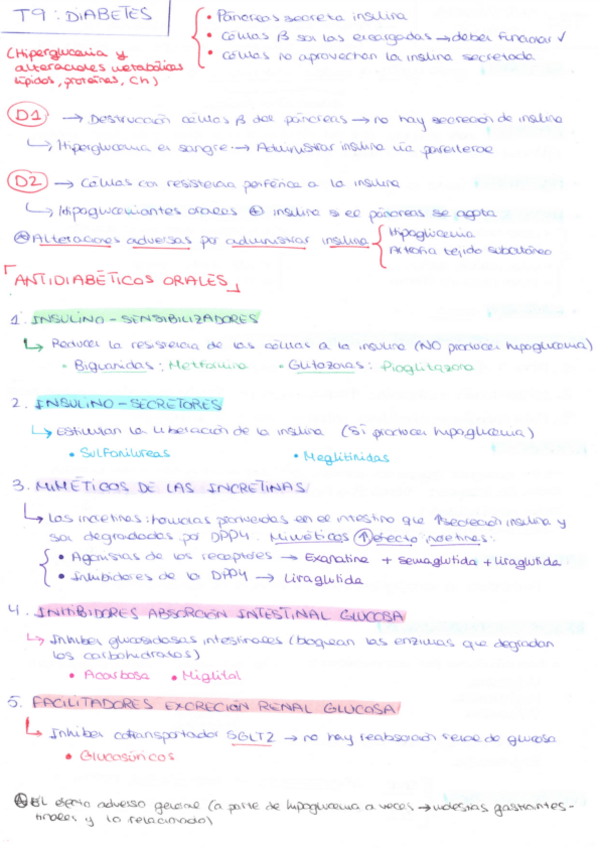 T9: DIABETES
(Hiperglucemia y
alteraciones metabólicas
lípidos, proteínas, CH)
• Páncreas secreta insulina
• Células β son las encargadas → deben funcionar ✓
• Células no aprovechan la insulina secretada
D1 → Destrucción células β del páncreas → no hay secreción de insulina
↳ Hiperglucemia en sangre → Administrar insulina vía parenteral
D2 → Células con resistencia periférica a la insulina
↳ Hipoglucemiantes orales ⊕ insulina si el páncreas se agota
Alteraciones adversas por administrar insulina
Hipoglicemia
Atrofia tejido subcutáneo
ANTIDIABÉTICOS ORALES
1. INSULINO-SENSIBILIZADORES
↳ Reducen la resistencia de las células a la insulina (NO producen hipoglucemia)
• Biguanidas: Metformina • Glitazonas: Pioglitazona
2. INSULINO-SECRETORES
↳ Estimulan la liberación de la insulina (Sí producen hipoglucemia)
• Sulfonilureas • Meglitinidas
3. MIMÉTICOS DE LAS INCRETINAS
↳ Las incretinas: hormonas promovidas en el intestino que ↑secreción insulina y
son degradadas por DPP4. Miméticos ↑efecto incretinas:
• Agonistas de los receptores → Exanatina + semaglutida + liraglutida
• Inhibidores de la DPP4 → Liraglutida
4. INHIBIDORES ABSORCIÓN INTESTINAL GLUCOSA
↳ Inhiben glucosidasas intestinales (bloquean las enzimas que degradan
los carbohidratos)
• Acarbosa • Miglitol
5. FACILITADORES EXCRECIÓN RENAL GLUCOSA
↳ Inhiben cotransportador SGLT2 → no hay reabsorción renal de glucosa
• Glucosúricos
El efecto adverso general (a parte de hipoglucemia a veces → molestias gastrointes-
tinales y lo relacionado)